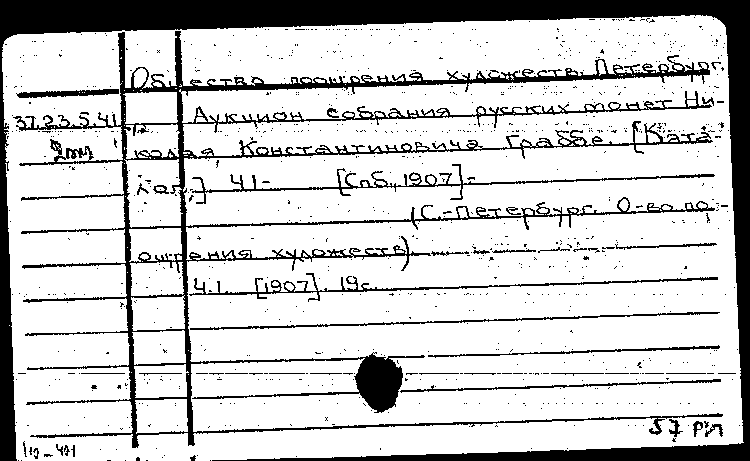 Общество поощрения художеств. Петербург.
37.23.5.41 Аукцион собрания русских монет Ни-
колая Константиновича Граббе. [Ката-
лог.] Ч.1- [Спб., 1907].-
(С.-Петербург. О-во по-
ощрения художеств).
Ч.1. [1907]. 19с.
57 РИ